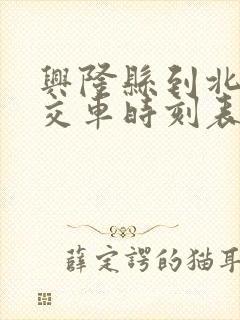 興隆縣到北
交車時刻表
薛定諤的猫耳